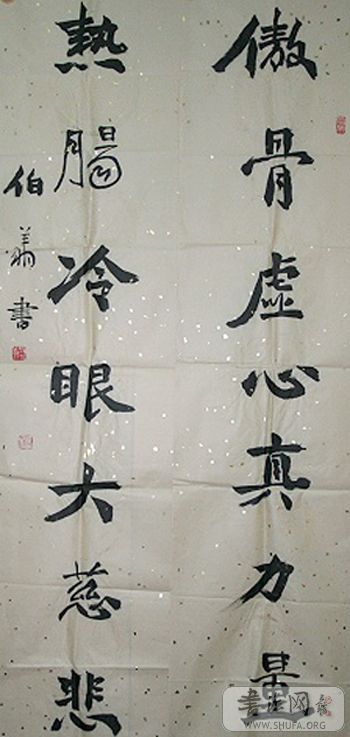 傲骨虚心真力量
熱腸冷眼大慈悲
書法网
WWW.SHUFA.ORG